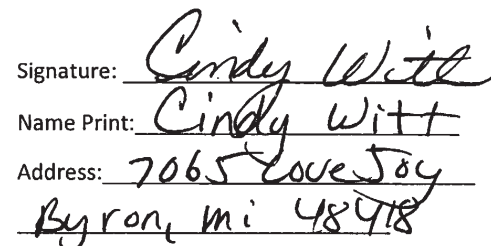 Signature: Cindy Witt
Name Print: Cindy Witt
Address: 7065 Lovejoy
Byron, mi 48418